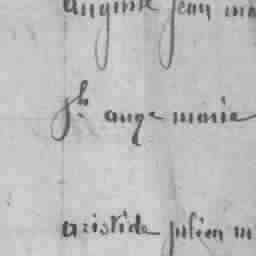 auguste jean ma
jh ange marie
aristide julien m